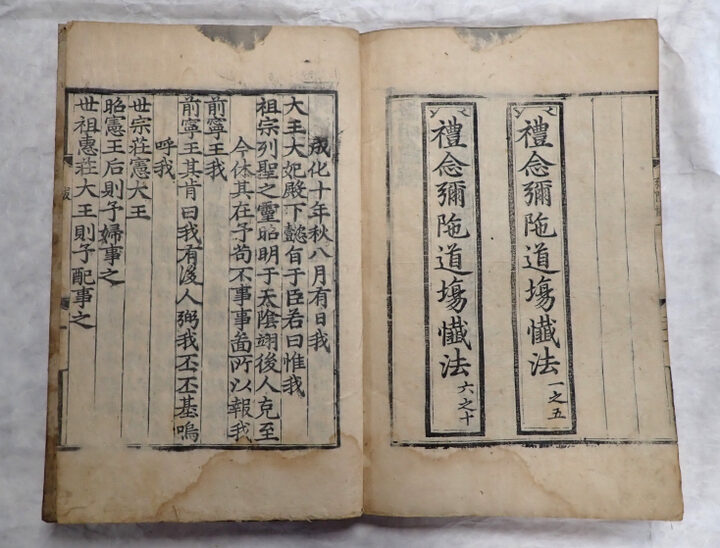 禮念彌陁道塲懺法 一之五
禮念彌陁道塲懺法 六之十
成化十年秋八月有日我
大王大妃殿下懿旨于臣若曰惟我
祖宗列聖之靈昭明于天陰翊後人克至
今休其在予苟不事事曷所以報我
前寧王我
前寧王其肯曰我有後人弼我丕丕基嗚
呼我
世宗莊憲大王
昭憲王后則予婦事之
世祖惠莊大王則予配事之